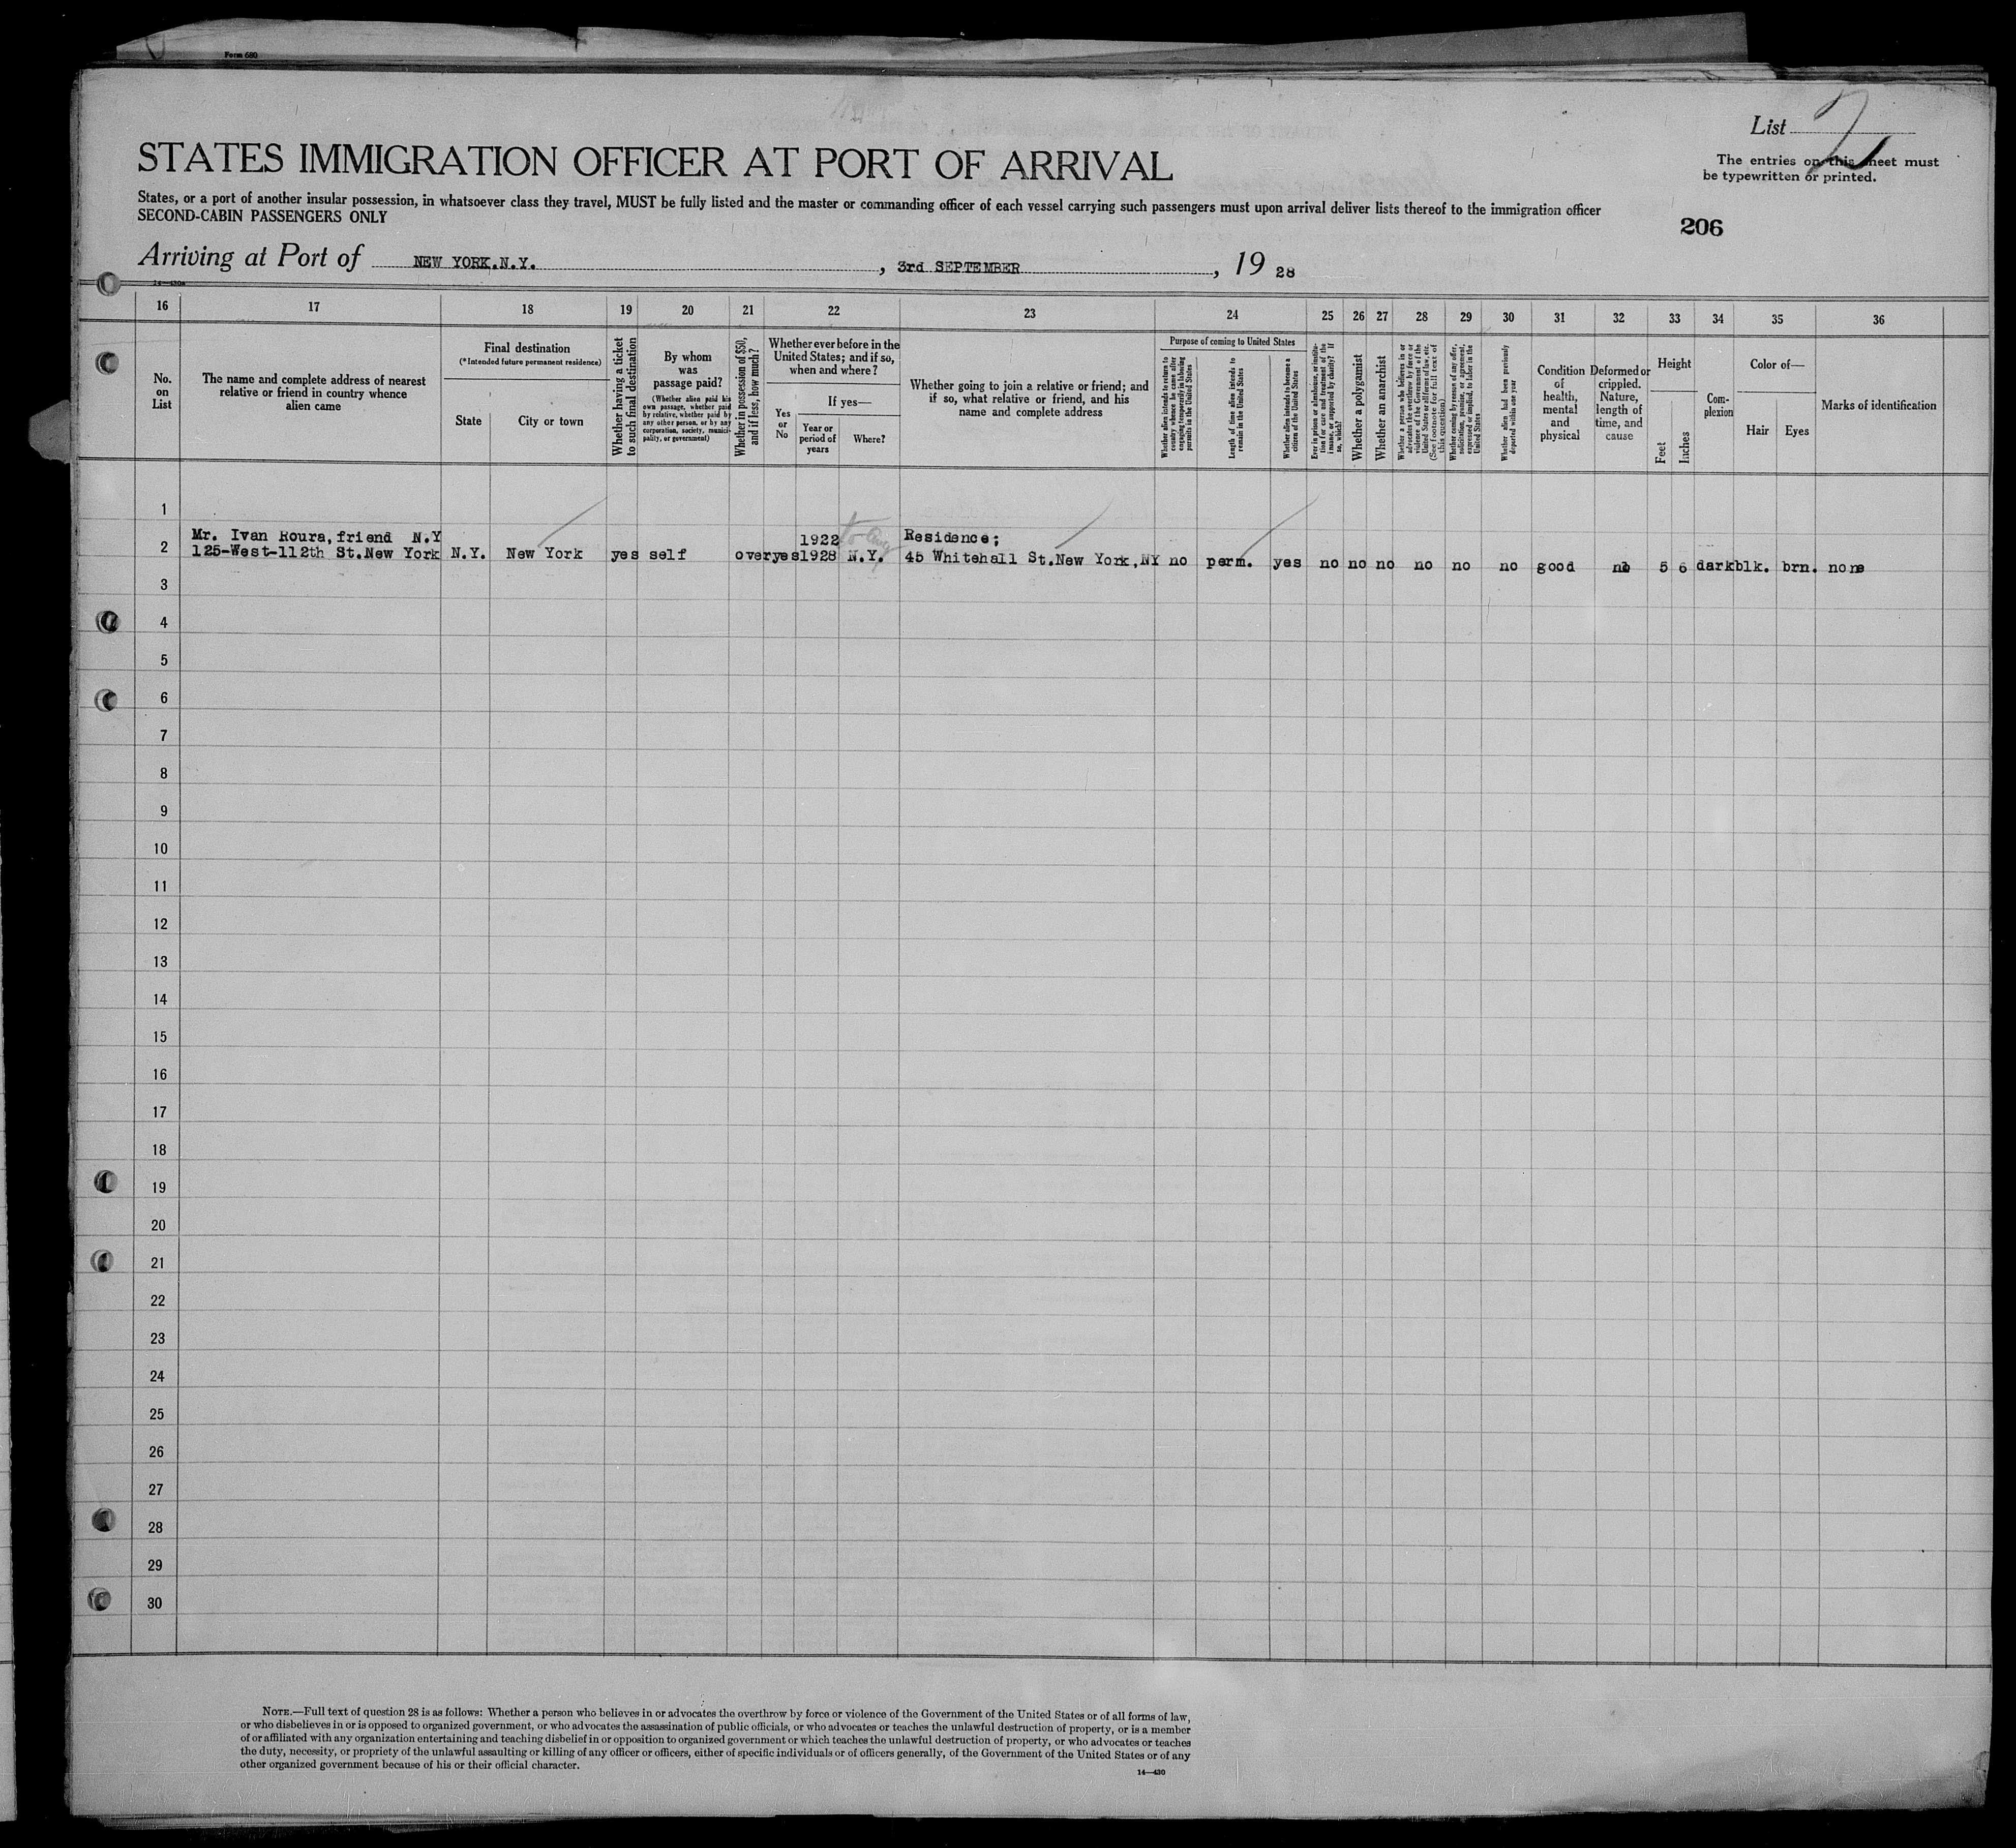 Form 630
List 2
STATES IMMIGRATION OFFICER AT PORT OF ARRIVAL
The entries on this sheet must
be typewritten or printed.
States, or a port of another insular possession, in whatsoever class they travel, MUST be fully listed and the master or commanding officer of each vessel carrying such passengers must upon arrival deliver lists thereof to the immigration officer
SECOND-CABIN PASSENGERS ONLY
206
Arriving at Port of NEW YORK.N.Y. , 3rd SEPTEMBER , 19 28
16 17 18 19 20 21 22 23 24 25 26 27 28 29 30 31 32 33 34 35 36
No. on List
The name and complete address of nearest relative or friend in country whence alien came
Final destination
(*Intended future permanent residence)
State
City or town
Whether having a ticket to such final destination
By whom was passage paid?
(Whether alien paid his own passage, whether paid by relative, whether paid by any other person, or by any corporation, society, municipality, or government)
Whether in possession of $50, and if less, how much?
Whether ever before in the United States; and if so, when and where?
Yes or No
If yes—
Year or period of years
Where?
Whether going to join a relative or friend; and if so, what relative or friend, and his name and complete address
Purpose of coming to United States
Whether alien intends to return to country whence he came after engaging temporarily in laboring pursuits in the United States
Length of time alien intends to remain in the United States
Whether alien intends to become a citizen of the United States
Ever in prison or almshouse, or institution for care and treatment of the insane, or supported by charity? If so, which?
Whether a polygamist
Whether an anarchist
Whether a person who believes in or advocates the overthrow by force or violence of the Government of the United States or all forms of law, etc. (See footnote for full text of this question)
Whether coming by reason of any offer, solicitation, promise, or agreement, expressed or implied, to labor in the United States
Whether alien had been previously deported within one year
Condition of health, mental and physical
Deformed or crippled. Nature, length of time, and cause
Height
Feet
Inches
Complexion
Color of—
Hair
Eyes
Marks of identification
1
Mr. Ivan Roura, friend N.Y 1922 Residence;
2 125-West-112th St.New York N.Y. New York yes self over yes 1928 N.Y. 45 Whitehall St.New York,NY no perm. yes no no no no no no good no 5 6 dark blk. brn. none
3
4
5
6
7
8
9
10
11
12
13
14
15
16
17
18
19
20
21
22
23
24
25
26
27
28
29
30
NOTE.—Full text of question 28 is as follows: Whether a person who believes in or advocates the overthrow by force or violence of the Government of the United States or of all forms of law,
or who disbelieves in or is opposed to organized government, or who advocates the assassination of public officials, or who advocates or teaches the unlawful destruction of property, or is a member
of or affiliated with any organization entertaining and teaching disbelief in or opposition to organized government or which teaches the unlawful destruction of property, or who advocates or teaches
the duty, necessity, or propriety of the unlawful assaulting or killing of any officer or officers, either of specific individuals or of officers generally, of the Government of the United States or of any
other organized government because of his or their official character.
14—430